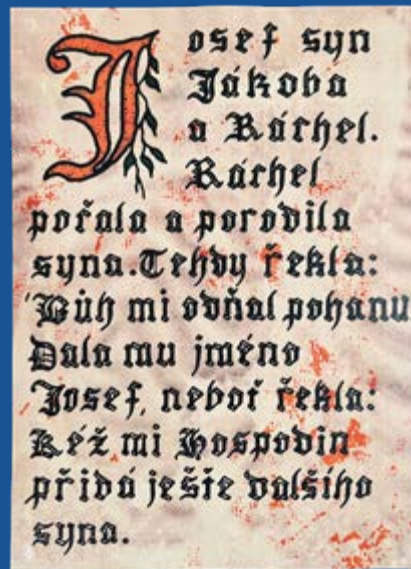 Josef syn
Jákoba
a Ráchel.
Ráchel
počala a porodila
syna. Tehdy řekla:
'Bůh mi odňal pohanu
Dala mu jméno
Josef, neboť řekla:
Kéž mi Hospodin
přidá ještě dalšího
syna.